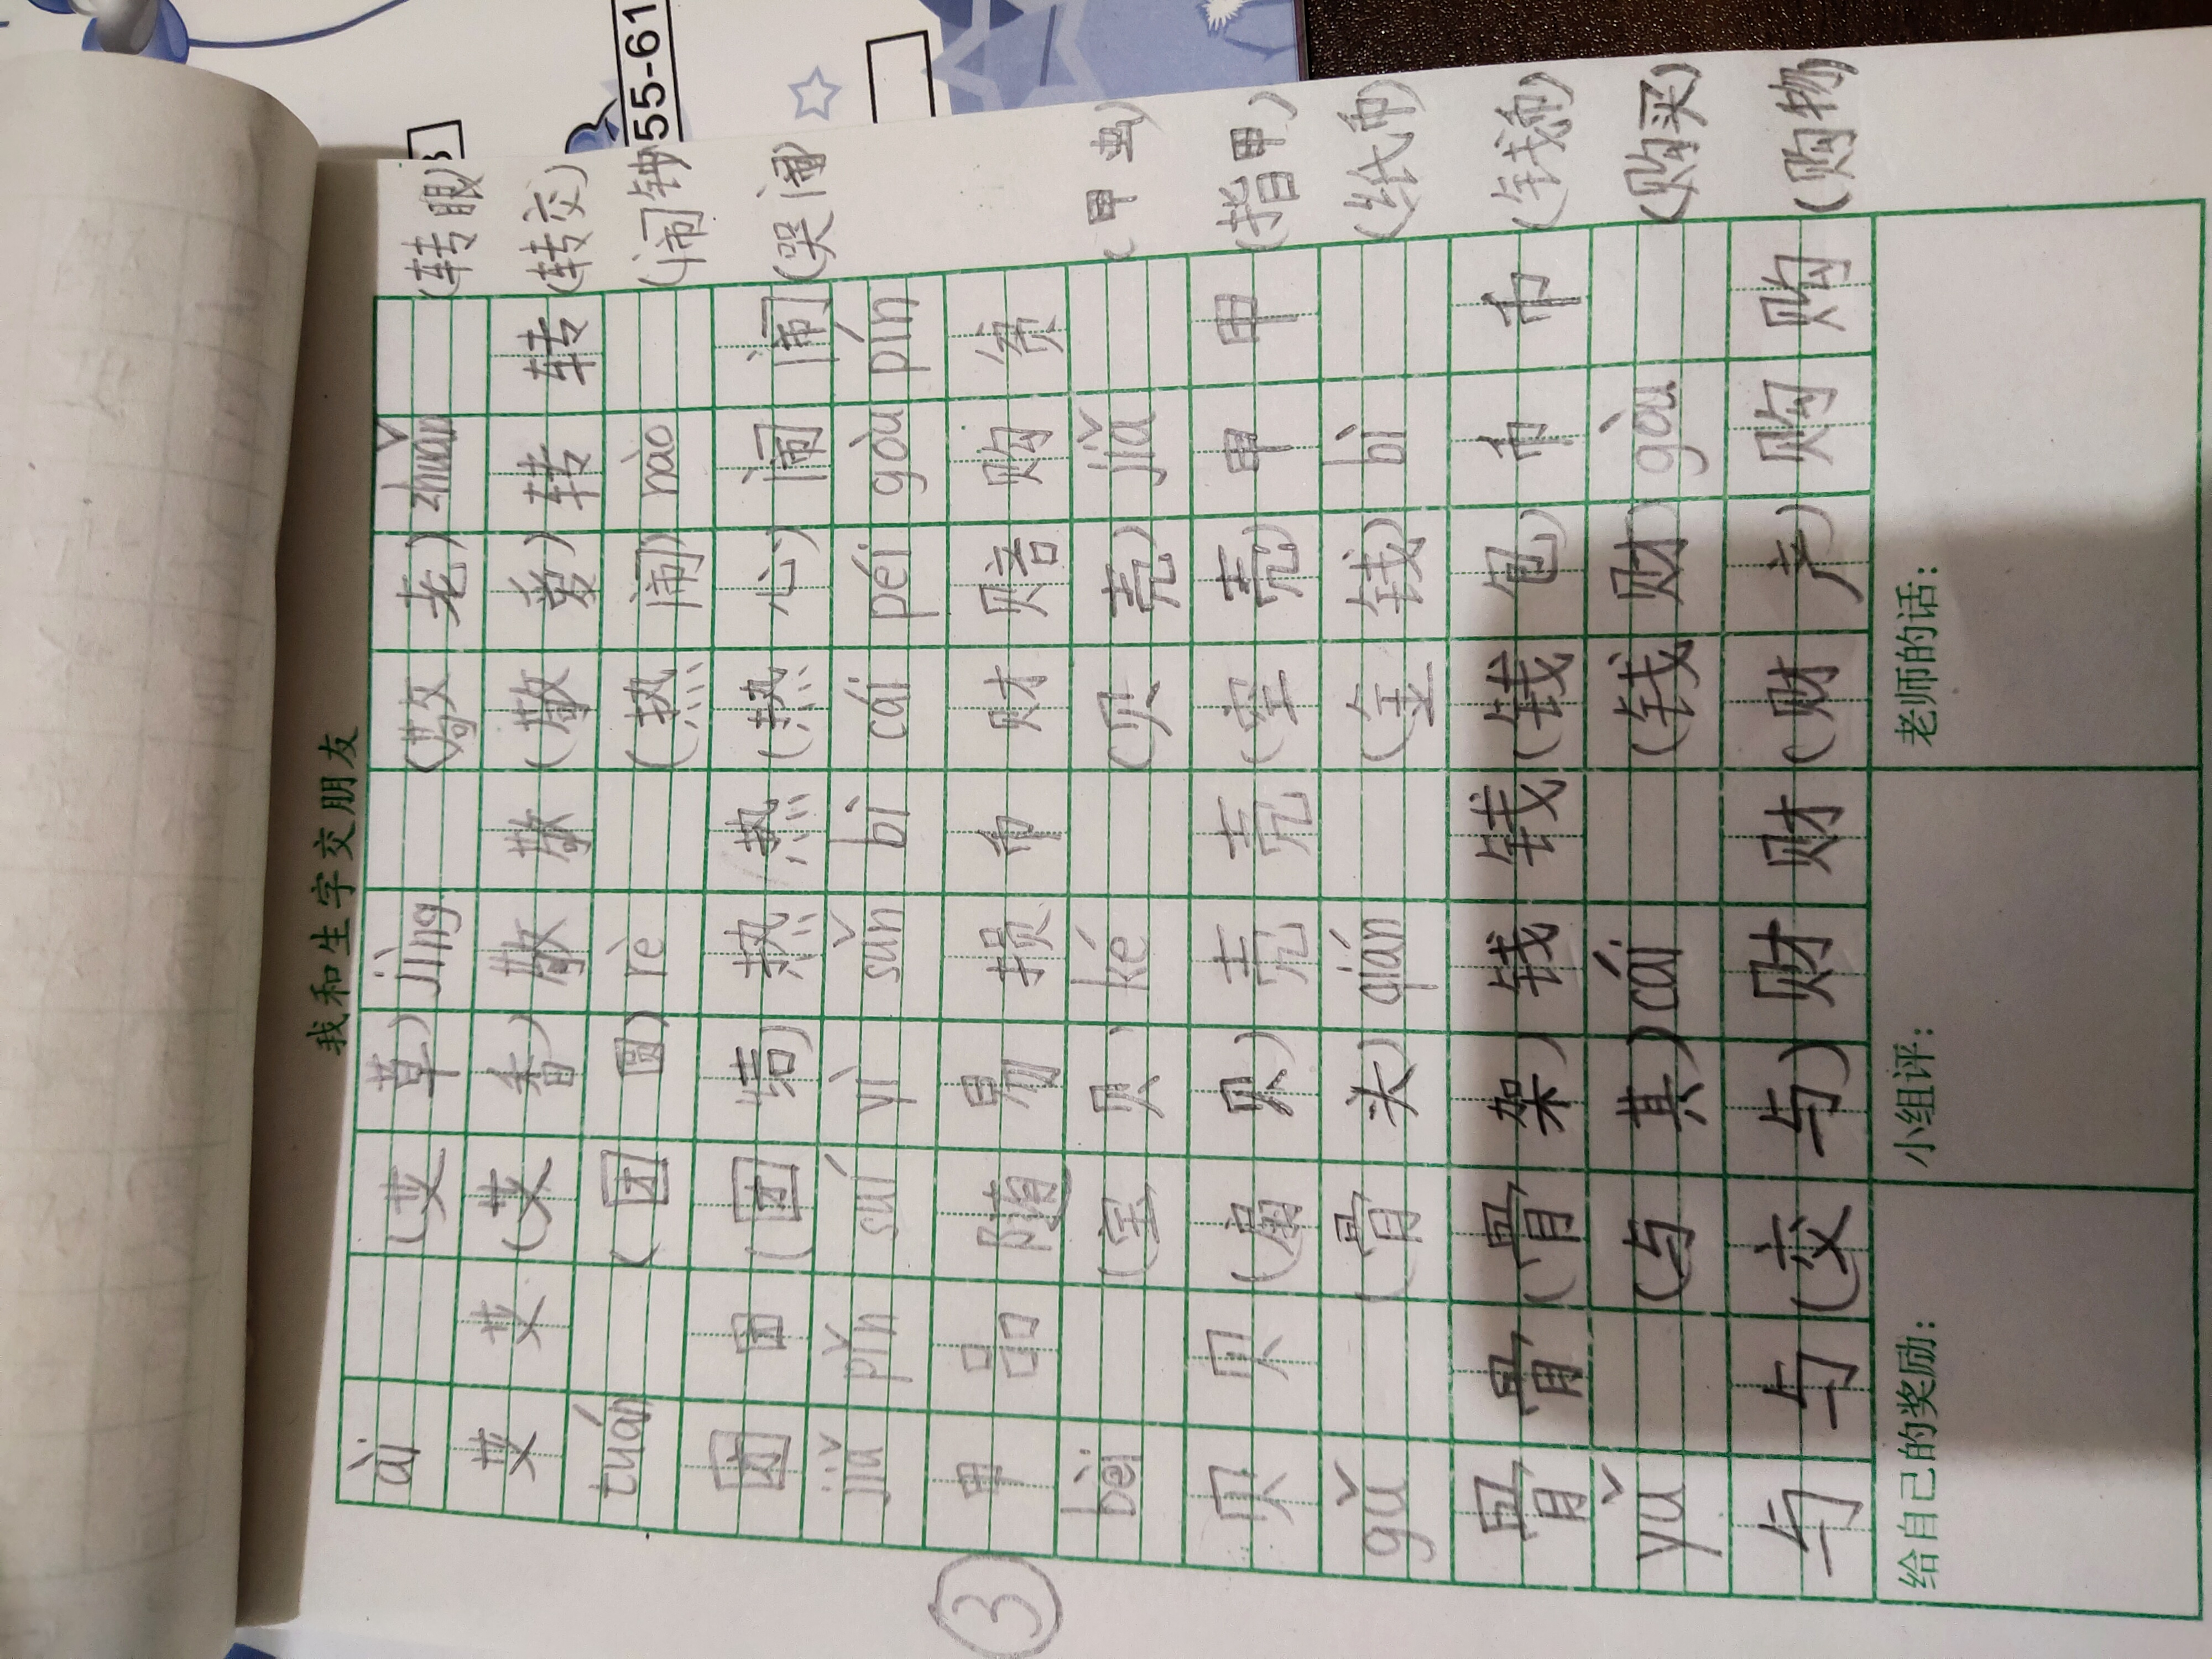 55-61
我和生字交朋友
ài (艾草) jìng (敬老) zhuǎn (转眼)
艾艾 (艾香) 敬敬 (敬爱) 转转 (转交)
tuán (团圆) rè (热闹) nào (闹钟)
团团 (团结) 热热 (热心) 闹闹 (哭闹
jiǎ pǐn suí yì sǔn bì cái péi gòu pín
甲品随易损币财赔购贫
bèi (宝贝) ké (贝壳) jiǎ (甲虫)
贝贝 (扇贝) 壳壳 (空壳) 甲甲 (指甲)
gǔ (骨头) qián (金钱) bì (纸币)
骨骨 (骨架) 钱钱 (钱包) 币币 (钱币)
yǔ (与其) cái (钱财) gòu (购买)
与与 (交与) 财财 (财产) 购购 (购物)
③
给自己的奖励： 小组评： 老师的话：